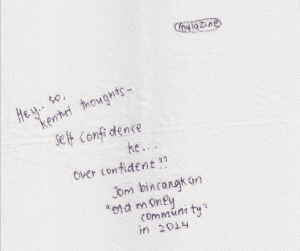 mulazine
Hey.. so,
kentut thoughts-
self confidence
ke...
over confident??
Jom bincangkan
"old money
community"
in 2024